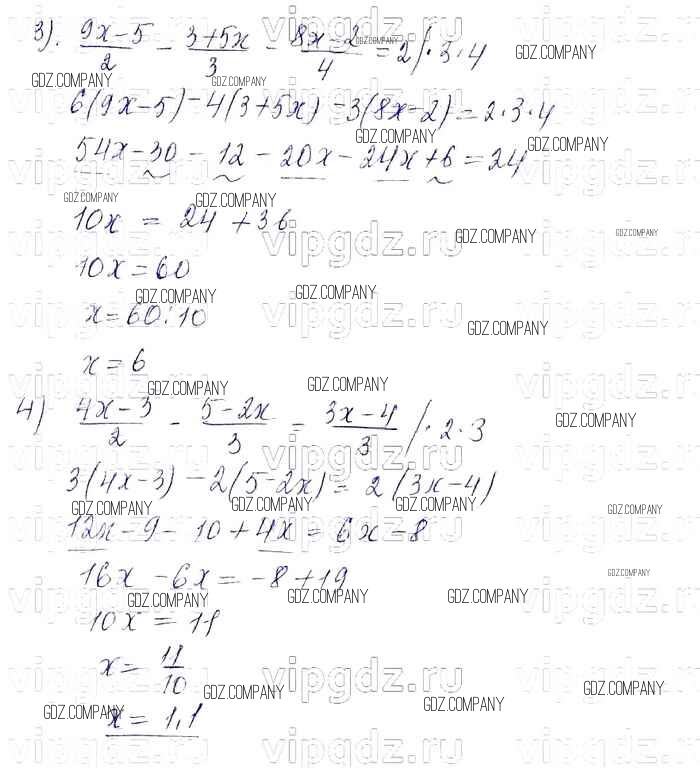 3). (9x-5)/2 - (3+5x)/3 - (8x-2)/4 = 2 /·3·4
6(9x-5) - 4(3+5x) - 3(8x-2) = 2·3·4
54x - 30 - 12 - 20x - 24x + 6 = 24
10x = 24 + 36
10x = 60
x = 60:10
x = 6
4) (4x-3)/2 - (5-2x)/3 = (3x-4)/3 /·2·3
3(4x-3) - 2(5-2x) = 2(3x-4)
12x - 9 - 10 + 4x = 6x - 8
16x - 6x = -8 + 19
10x = 11
x = 11/10
x = 1,1
GDZ.COMPANY
vipgdz.ru